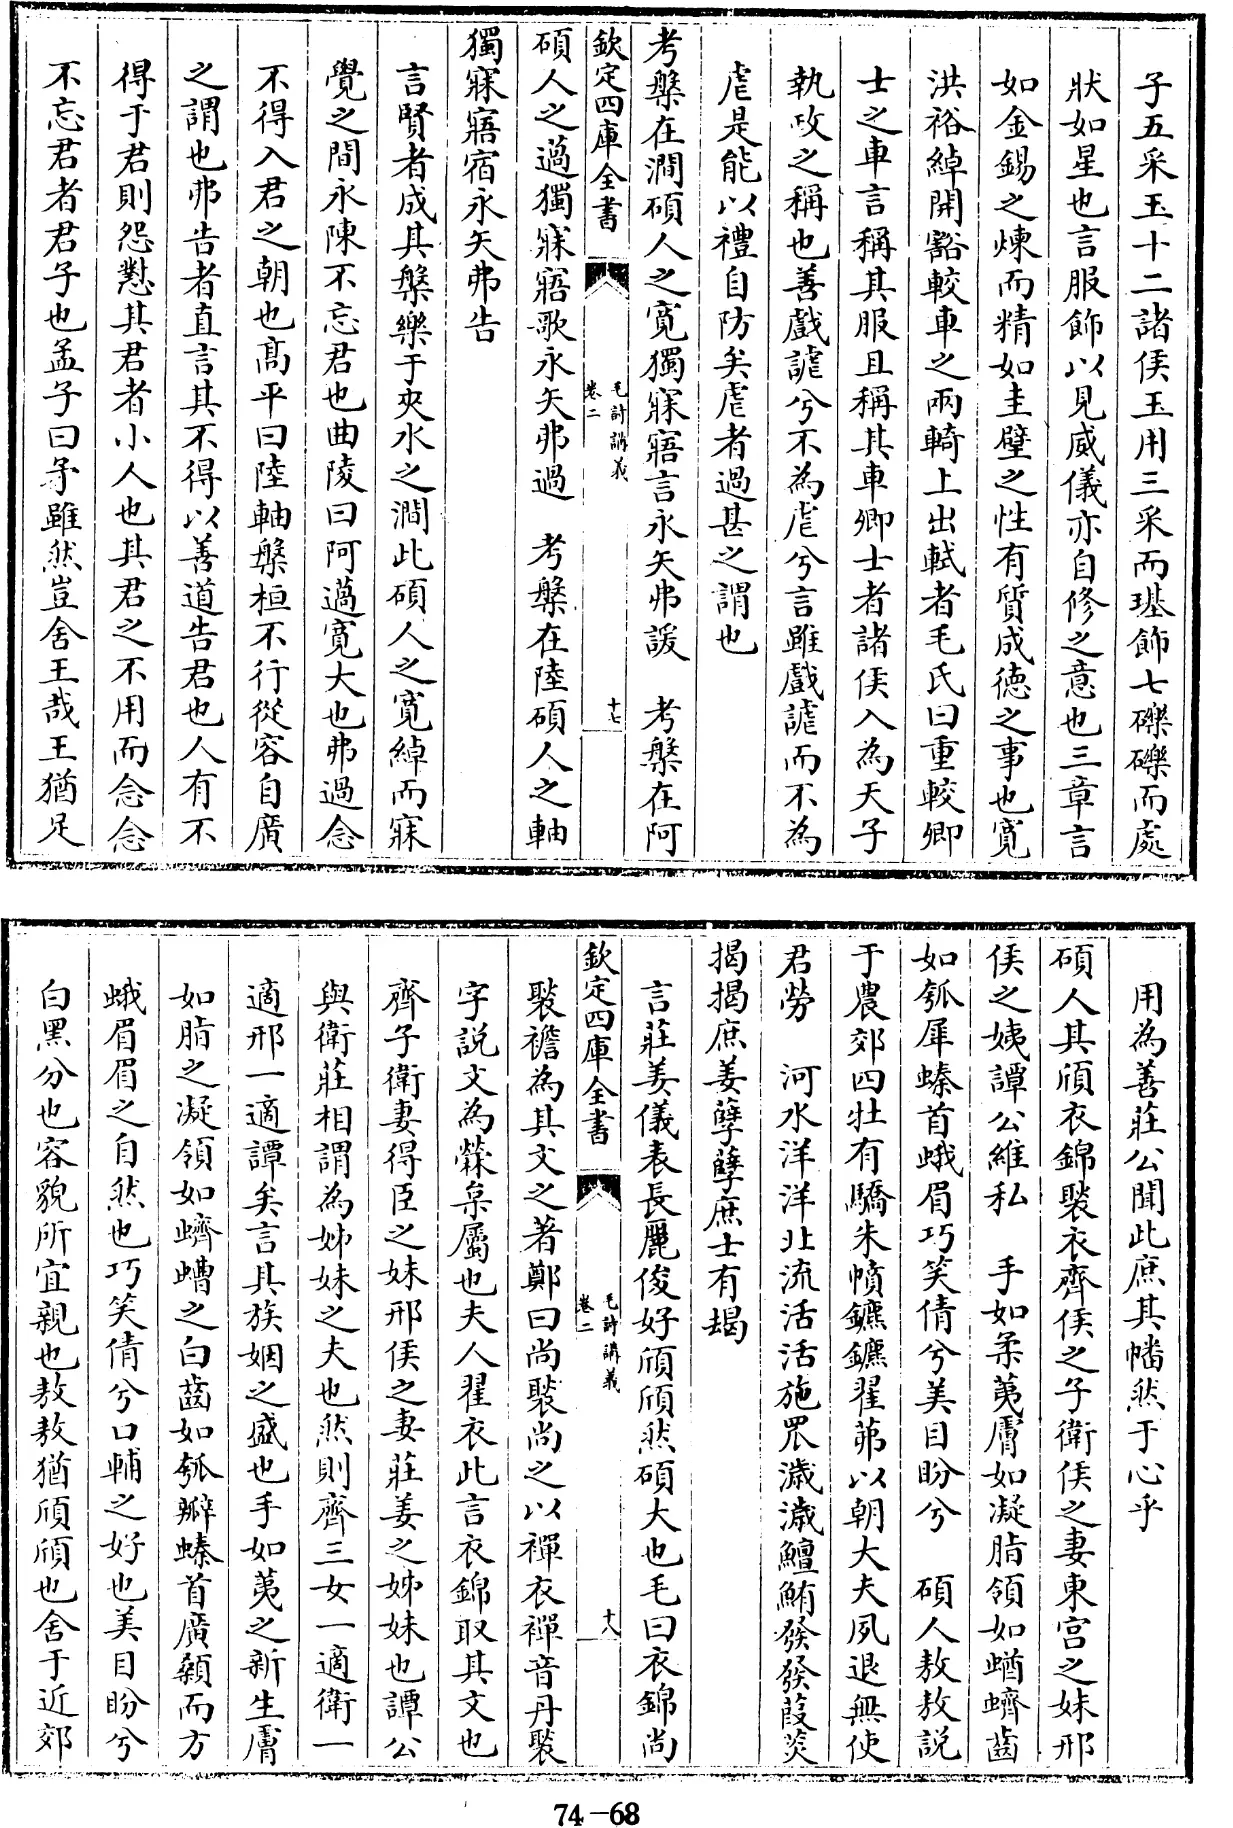 子五采玉十二諸侯玉用三采而璂飾七礫礫而處
狀如星也言服飾以見威儀亦自修之意也三章言
如金錫之煉而精如圭璧之性有質成徳之事也寛
洪裕綽開豁較車之兩輢上出軾者毛氏曰重較卿
士之車言稱其服且稱其車卿士者諸侯入為天子
執政之稱也善戲謔兮不為虐兮言雖戲謔而不為
虐是能以禮自防矣虐者過甚之謂也
考槃在澗碩人之寛獨寐寤言永矢弗諼 考槃在阿
欽定四庫全書
毛詩講義
卷二
十七
碩人之薖獨寐寤歌永矢弗過 考槃在陸碩人之軸
獨寐寤宿永矢弗告
言賢者成其槃樂于夾水之澗此碩人之寛綽而寐
覺之間永陳不忘君也曲陵曰阿薖寛大也弗過念
不得入君之朝也髙平曰陸軸槃桓不行從容自廣
之謂也弗告者直言其不得以善道告君也人有不
得于君則怨懟其君者小人也其君之不用而念念
不忘君者君子也孟子曰予雖然豈舍王哉王猶足
用為善莊公聞此庶其幡然于心乎
碩人其頎衣錦褧衣齊侯之子衛侯之妻東宮之妹邢
侯之姨譚公維私 手如柔荑膚如凝脂領如蝤蠐齒
如瓠犀螓首蛾眉巧笑倩兮美目盼兮 碩人敖敖説
于農郊四牡有驕朱幩鑣鑣翟茀以朝大夫夙退無使
君勞 河水洋洋北流活活施罛濊濊鱣鮪發發葭菼
揭揭庶姜孽孽庶士有朅
言莊姜儀表長麗俊好頎頎然碩大也毛曰衣錦尚
欽定四庫全書
毛詩講義
卷二
十八
褧襜為其文之著鄭曰尚褧尚之以襌衣襌音丹褧
字説文為檾枲屬也夫人翟衣此言衣錦取其文也
齊子衛妻得臣之妹邢侯之妻莊姜之姊妹也譚公
與衛莊相謂為姊妹之夫也然則齊三女一適衛一
適邢一適譚矣言其族姻之盛也手如荑之新生膚
如脂之凝領如蠐螬之白齒如瓠瓣螓首廣顙而方
蛾眉眉之自然也巧笑倩兮口輔之好也美目盼兮
白黑分也容貌所宜親也敖敖猶頎頎也舍于近郊
74-68